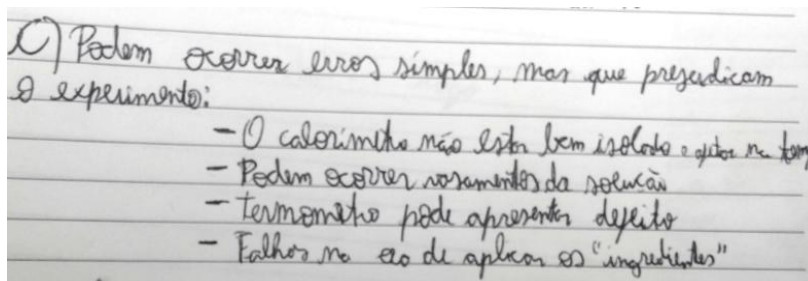 C) Podem ocorrer erros simples, mas que prejudicam
o experimento:
- O calorimetro não estar bem isolado e afetar na tem
- Podem ocorrer vasamentos da solução
- termometro pode apresentar defeito
- Falhas na de aplicar os "ingredientes"